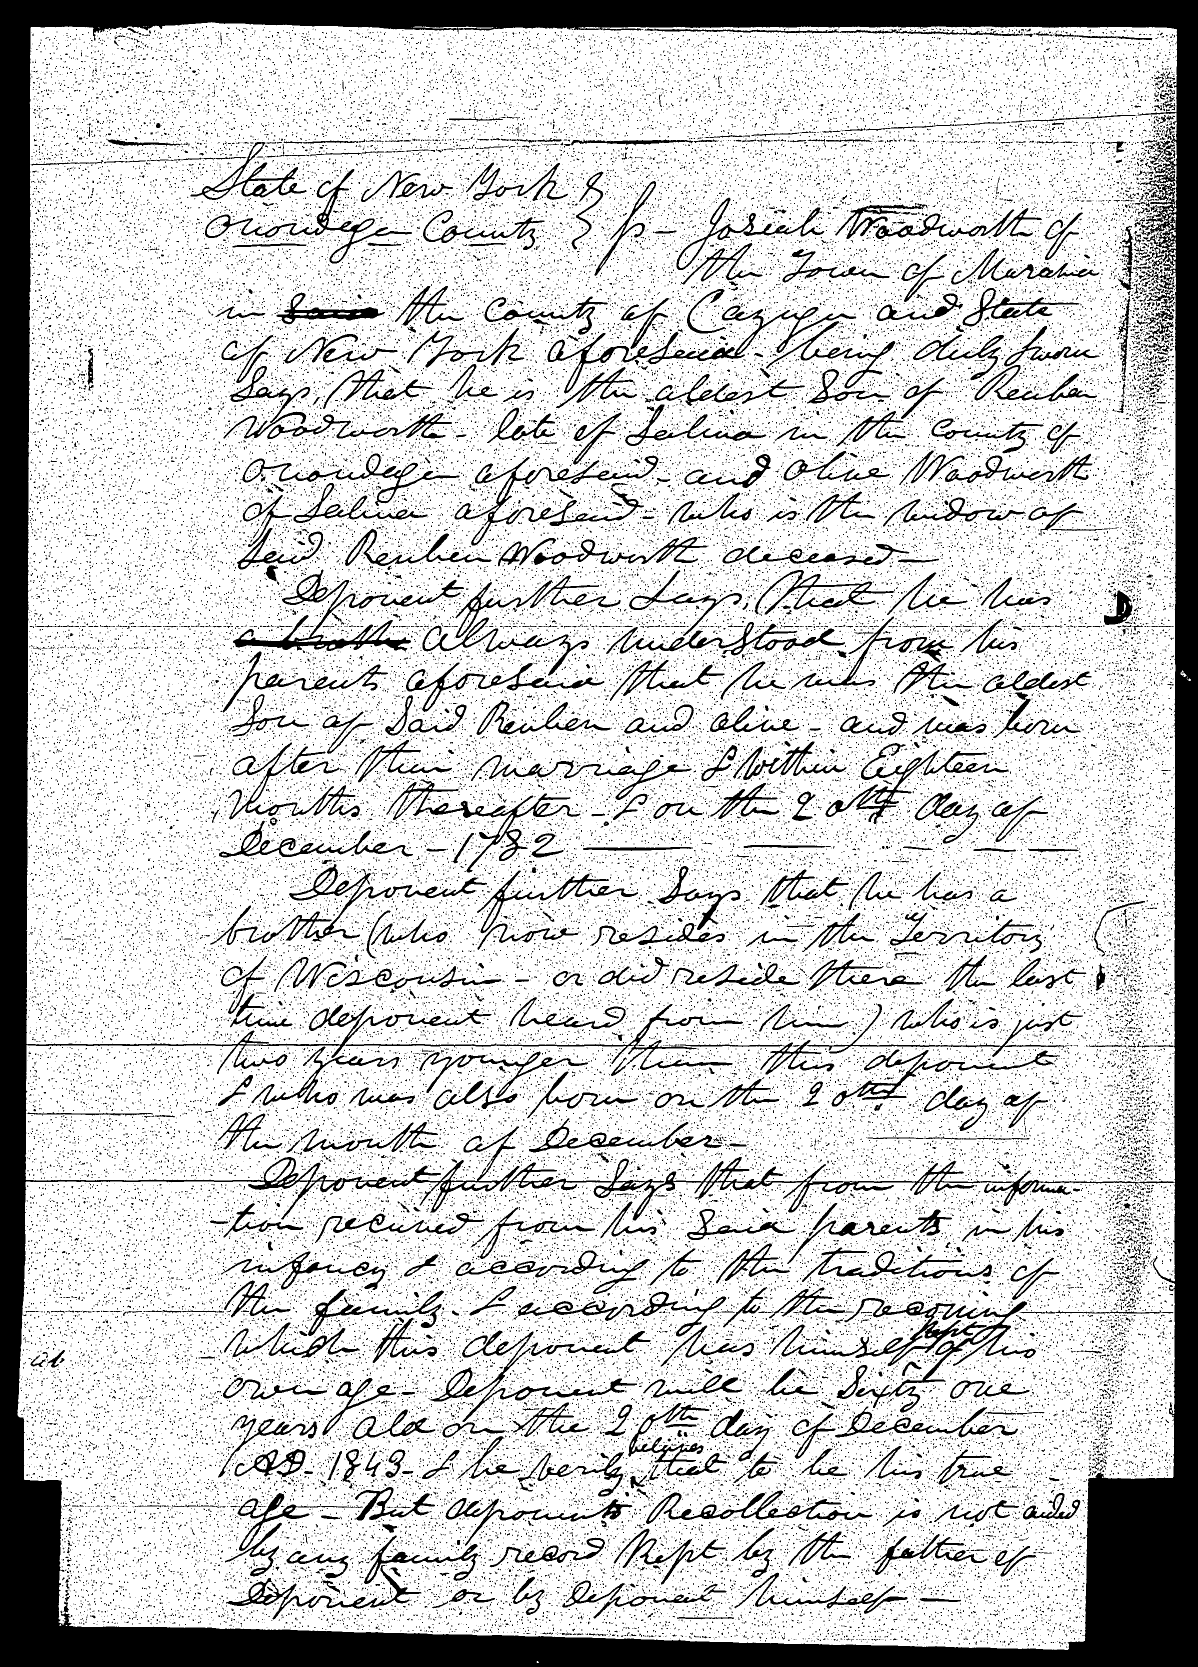 State of New York }
Onondaga County } ss - Josiah Woodworth of
the Town of Moravia
in said the County of Cayuga and State
of New York aforesaid - being duly sworn
Says, that he is the oldest Son of Reuben
Woodworth - late of Salina in the County of
Onondaga aforesaid - and Olive Woodworth
of Salina aforesaid - who is the widow of
Said Reuben Woodworth deceased -
Deponent further Says, that he has
a brother always understood from his
parents aforesaid that he was the oldest
Son of Said Reuben and Olive - and was born
after their marriage & Within Eighteen
months thereafter - & on the 20th day of
December - 1782
Deponent further Says that he has a
brother (who now resides in the Territory
of Wisconsin - or did reside there the last
time deponent heard from him) who is just
two years younger than this deponent
& who was also born on the 20th day of
the month of December -
Deponent further Says that from the informa-
-tion received from his Said parents in his
infancy & according to the traditions of
the family - & according to the reconing
which this deponent has himself kept of his
own age - Deponent will be Sixty one
years old on the 20th day of December
AD - 1843 - & he verily believes that to be his true
age - But deponents Recollection is not aided
by any family record Kept by the father of
Deponent or by Deponent himself -